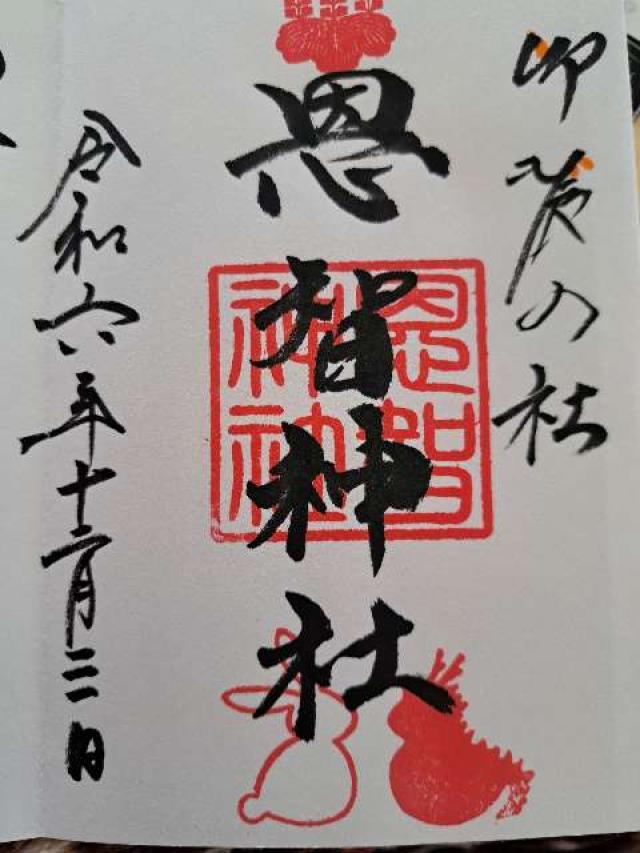 卯辰の社
恩智神社
恩智神社
令和六年十二月三日